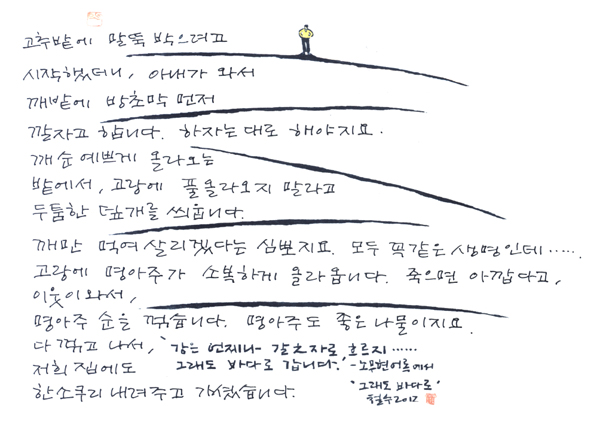 고추밭에 말뚝 박으려고
시작했더니, 아내가 와서
깨밭에 방초막 먼저
깔자고 합니다. 하자는 대로 해야지요.
깨순 예쁘게 올라오는
밭에서, 고랑에 풀올라오지 말라고
두툼한 덮개를 씌웁니다.
깨만 먹여 살리겠다는 심뽀지요. 모두 똑같은 생명인데·····.
고랑에 명아주가 소복하게 올라옵니다. 죽으면 아깝다고,
이웃이 와서,
명아주 순을 꺾습니다. 명아주도 좋은 나물이지요.
다 꺾고 나서,
저희 집에도
한소쿠리 내려주고 가셨습니다.
'강은 언제나 갈 之자로 흐르지······
그래도 바다로 갑니다.' -노무현어록에서
'그래도 바다로'
철수2012